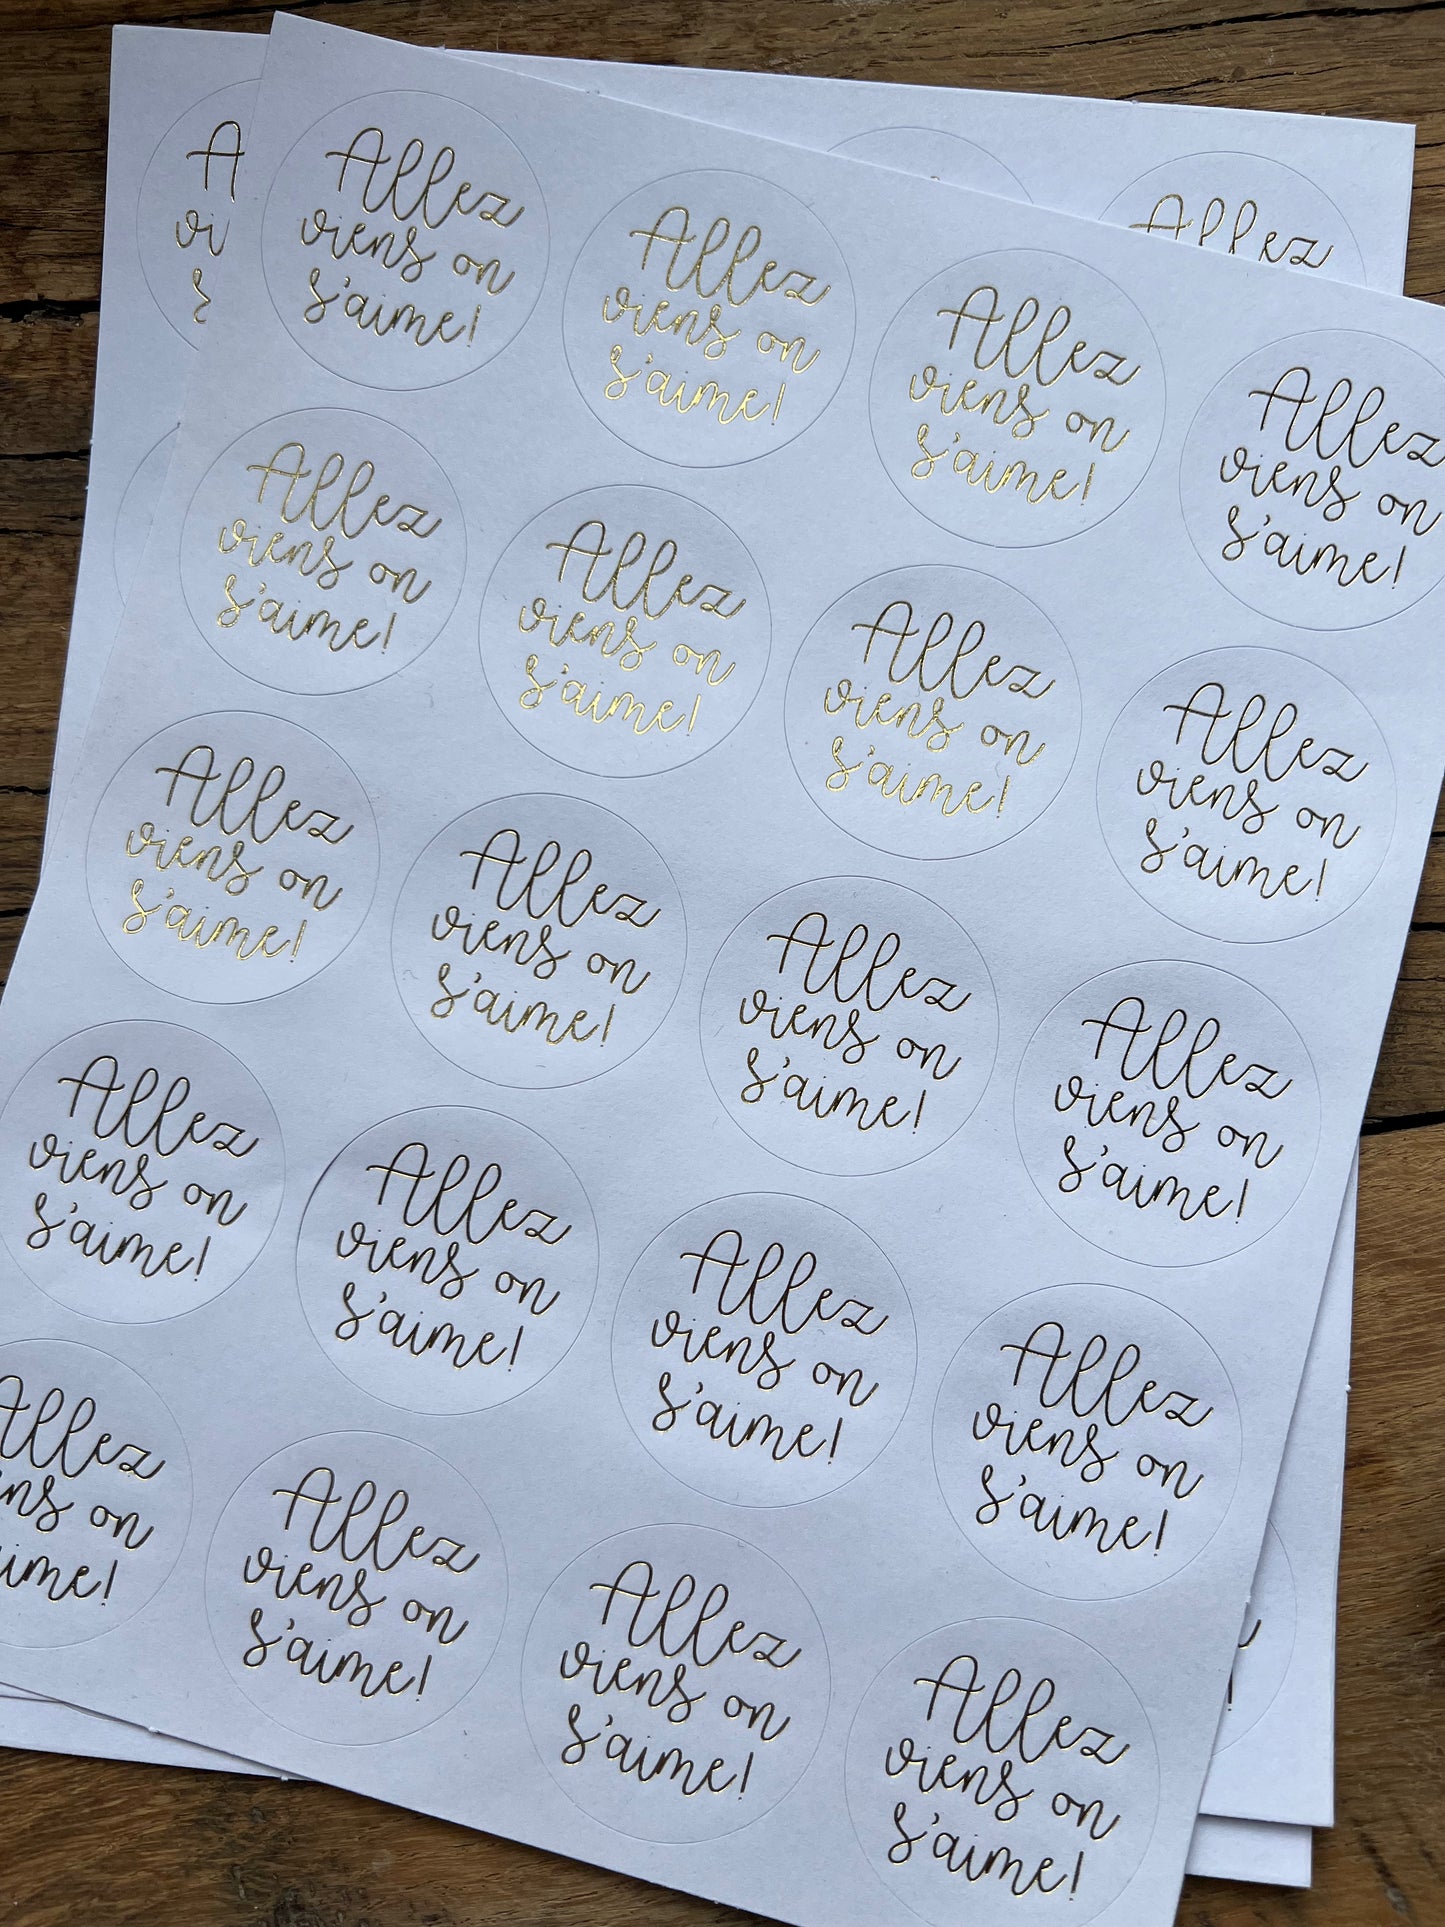 Allez
viens on
s'aime!
Allez
viens on
s'aime!
Allez
viens on
s'aime!
Allez
viens on
s'aime!
Allez
viens on
s'aime!
Allez
viens on
s'aime!
Allez
viens on
s'aime!
Allez
viens on
s'aime!
Allez
viens on
s'aime!
Allez
viens on
s'aime!
Allez
viens on
s'aime!
Allez
viens on
s'aime!
Allez
viens on
s'aime!
Allez
viens on
s'aime!
Allez
viens on
s'aime!
Allez
viens on
s'aime!
Allez
ns on
ime!
Allez
viens on
s'aime!
Allez
viens on
s'aime!
Allez
viens on
s'aime!
A
vi
s
Allez